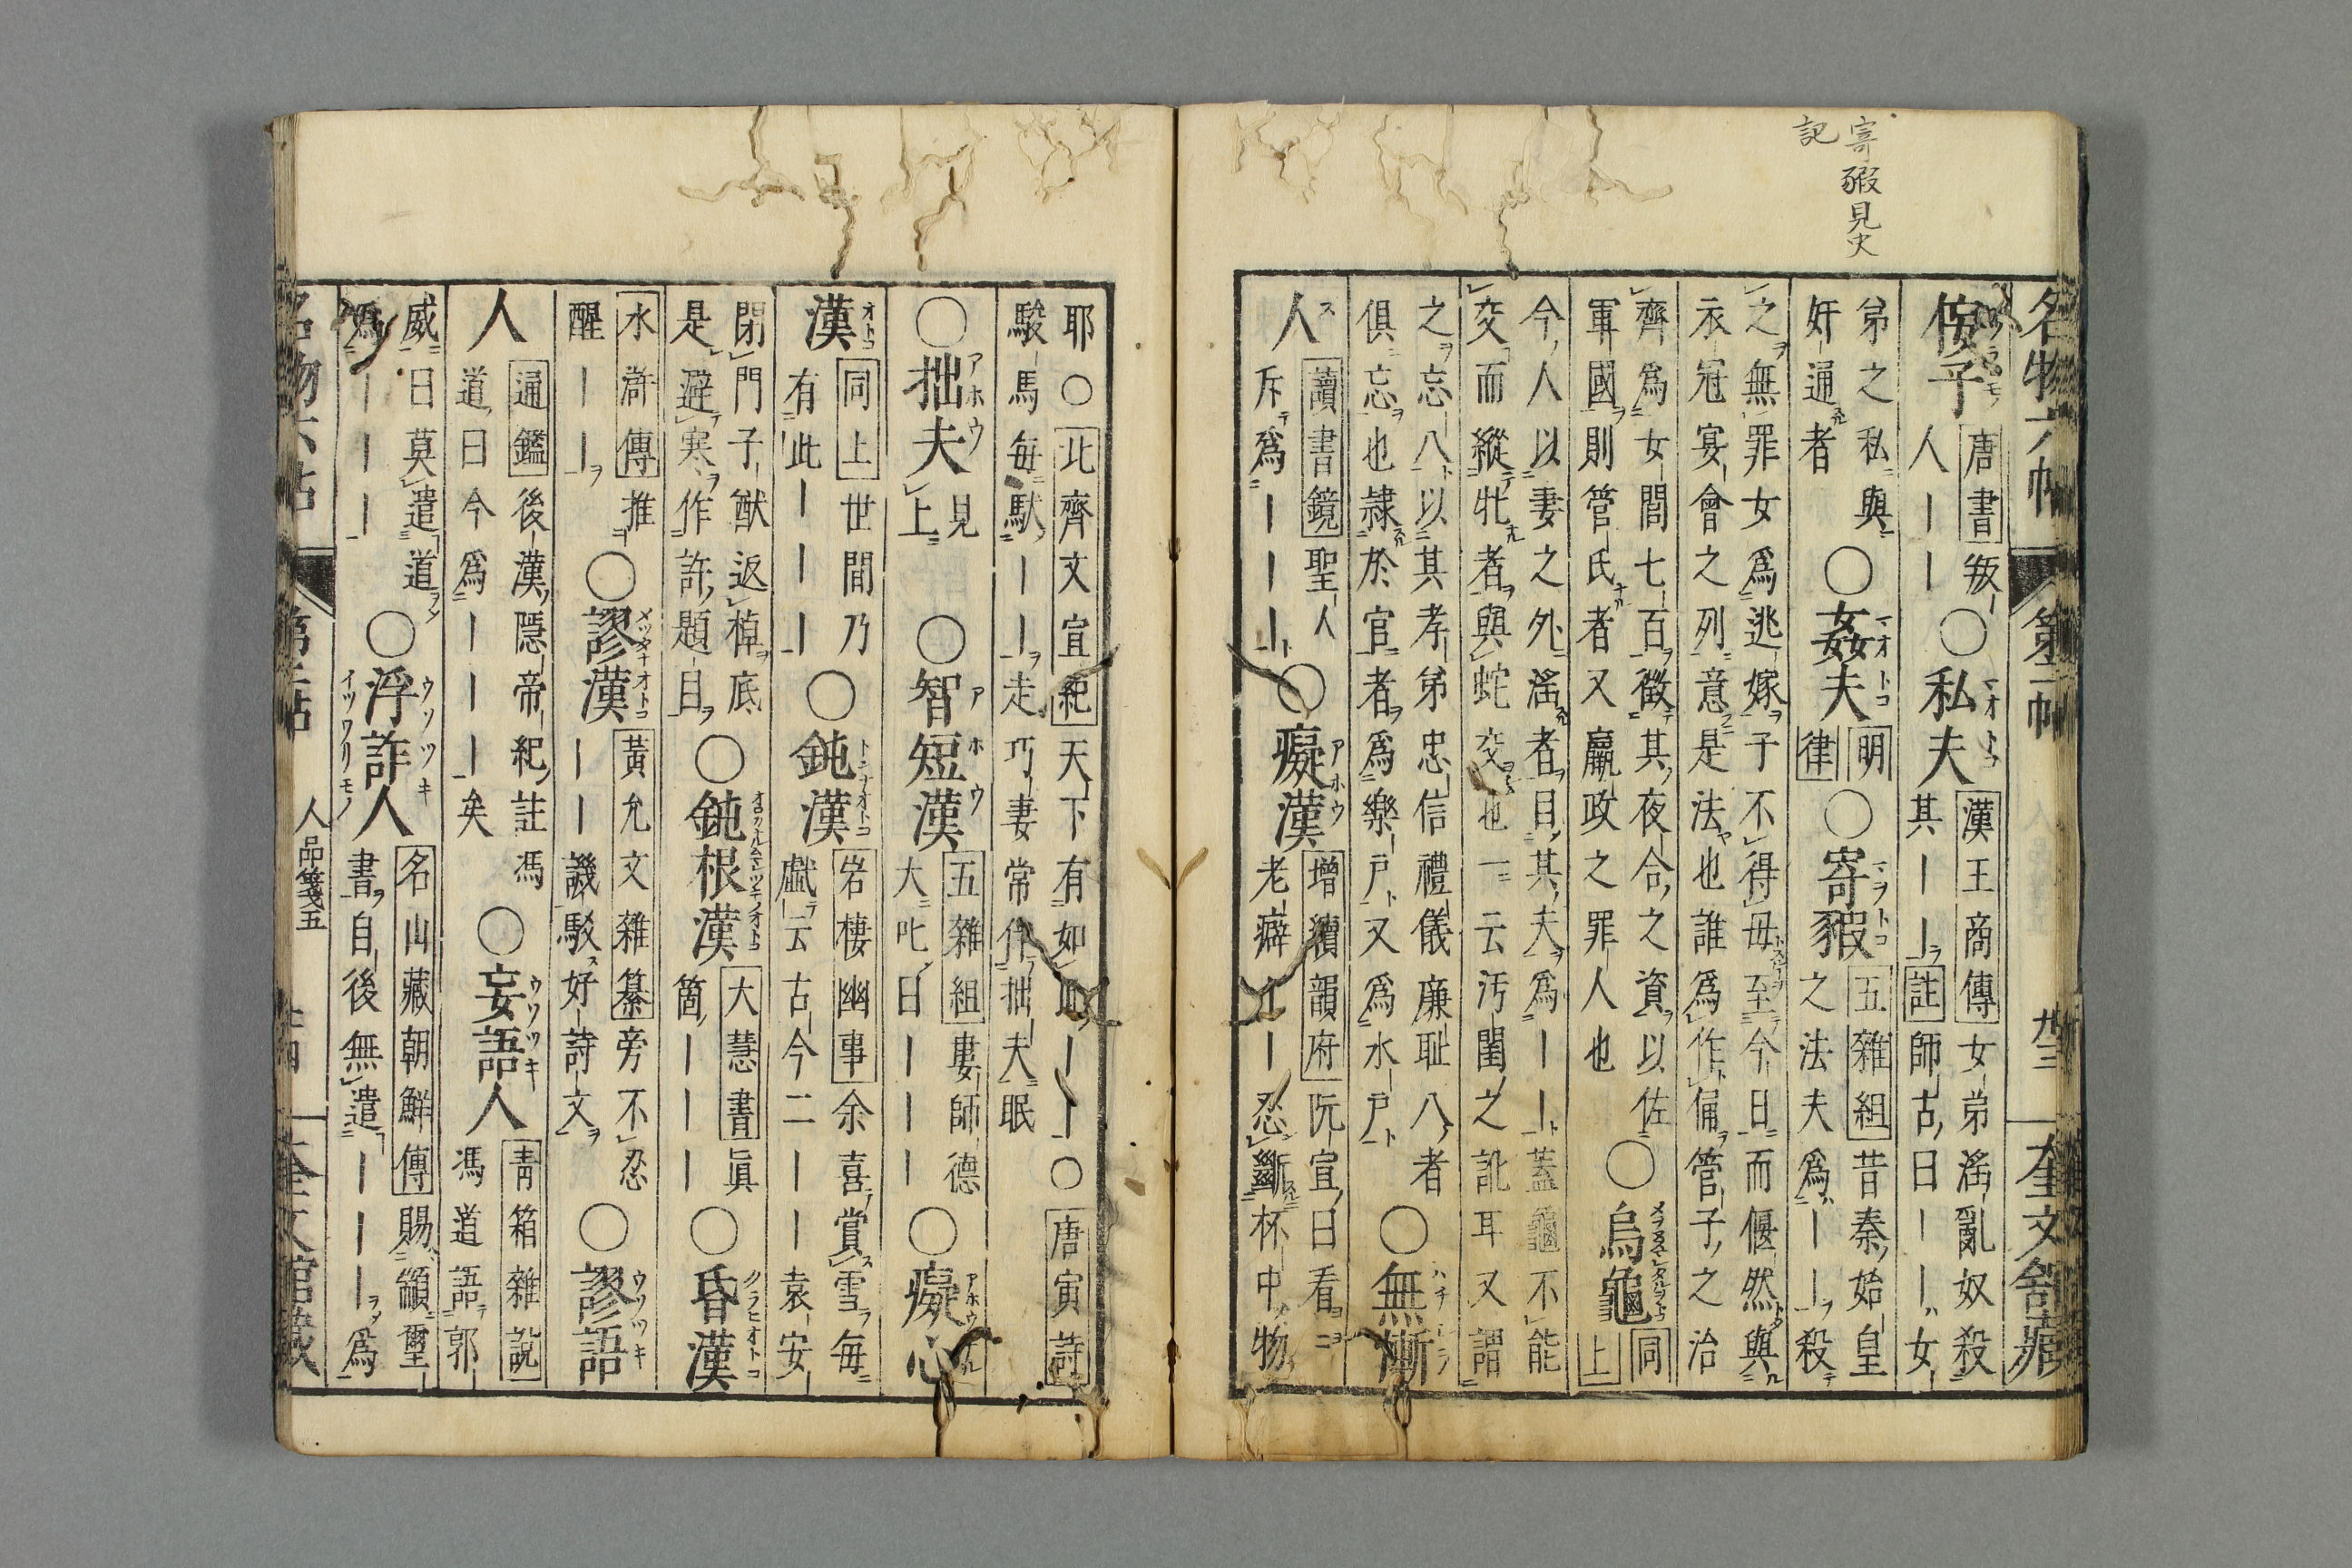 寄豭見史
記
名物六帖 第二帖 廿三 奎文舘藏
侫子 唐書叛
人｜｜○私夫 漢王商傳女弟淫亂奴殺
其｜｜註師古曰｜｜女
弟之私與
奸通者○姦夫 明
律○寄豭 五雜組昔秦始皇
之法夫爲｜｜殺
之無罪女爲逃嫁子不得母至今日而偃然與
衣冠宴會之列意是法也誰爲作俑管子之治
齊爲女閭七百徵其夜合之資以佐
軍國則管氏者又嬴政之罪人也○烏龜 同
上
今人以妻之外淫者目其夫爲｜｜蓋龜不能
交而縱牝者與蛇交也一云汚閨之訛耳又謂
之忘八以其孝弟忠信禮儀廉耻八者
俱忘也隷於官者爲樂戸又爲水戸○無慚
人 讀書鏡聖人
斥爲｜｜｜○癡漢 增續韻府阮宣曰看
老癖｜｜忍斷杯中物
耶○北齊文宣紀天下有如此｜｜○唐寅詩
駿馬每馱｜｜走巧妻常伴拙夫眠
○拙夫 見
上○智短漢 五雜組婁師德
大叱曰｜｜｜○癡心
漢 同上世間乃
有此｜｜｜○鈍漢 岩棲幽事余喜賞雪每
戲云古今二｜｜袁安
閉門子猷返棹底
是避寒作許題目○鈍根漢 大慧書眞
箇｜｜｜○昏漢
水滸傳推
醒｜｜○謬漢 黃允文雜纂旁不忍
｜｜譏駁好詩文○謬語
人 通鑑後漢隱帝紀註馮
道曰今爲｜｜｜矣○妄語人 青箱雜說
馮道語郭
威曰莫遣道
爲｜｜｜○浮詐人 名山藏朝鮮傳賜顓璽
書自後無遣｜｜｜爲
人品箋五